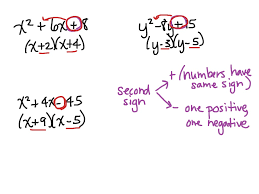 x² + 6x + 8
(x+2)(x+4)
y² - 8y + 15
(y-3)(y-5)
second sign
+ (numbers have same sign)
- one positive, one negative
x² + 4x - 45
(x+9)(x-5)